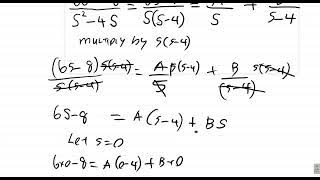 S²-4S S(S-4) S S-4
multiply by S(S-4)
(6S-8) S(S-4) / S(S-4) = A/S S(S-4) + B/(S-4) S(S-4)
6S-8 = A(S-4) + BS
Let S=0
6×0-8 = A(0-4) + B×0